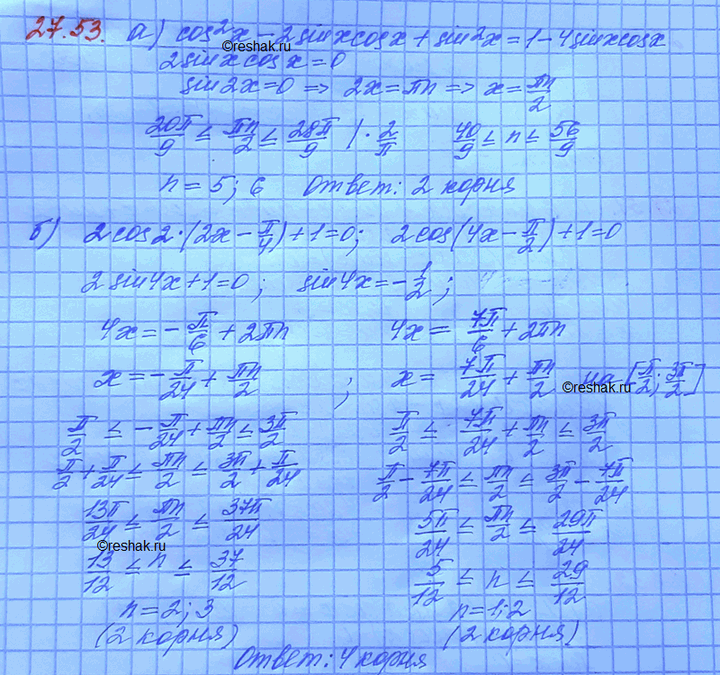 27.53. а) cos²x - 2sinxcosx + sin²x = 1 - 4sinxcosx
©reshak.ru
2sinxcosx = 0
sin2x = 0 => 2x = πn => x = πn/2
20π/9 ≤ πn/2 ≤ 28π/9 | · 2/π 40/9 ≤ n ≤ 56/9
n = 5; 6 Ответ: 2 корня
б) 2cos2·(2x - π/4) + 1 = 0; 2cos(4x - π/2) + 1 = 0
2sin4x + 1 = 0; sin4x = -1/2;
4x = -π/6 + 2πn 4x = 7π/6 + 2πn
x = -π/24 + πn/2 ; x = 7π/24 + πn/2 на [π/2; 3π/2]
©reshak.ru
π/2 ≤ -π/24 + πn/2 ≤ 3π/2 π/2 ≤ 7π/24 + πn/2 ≤ 3π/2
π/2 + π/24 ≤ πn/2 ≤ 3π/2 + π/24 π/2 - 7π/24 ≤ πn/2 ≤ 3π/2 - 7π/24
13π/24 ≤ πn/2 ≤ 37π/24 5π/24 ≤ πn/2 ≤ 29π/24
©reshak.ru
13/12 ≤ n ≤ 37/12 5/12 ≤ n ≤ 29/12
n = 2; 3 n = 1; 2
(2 корня) (2 корня)
Ответ: 4 корня